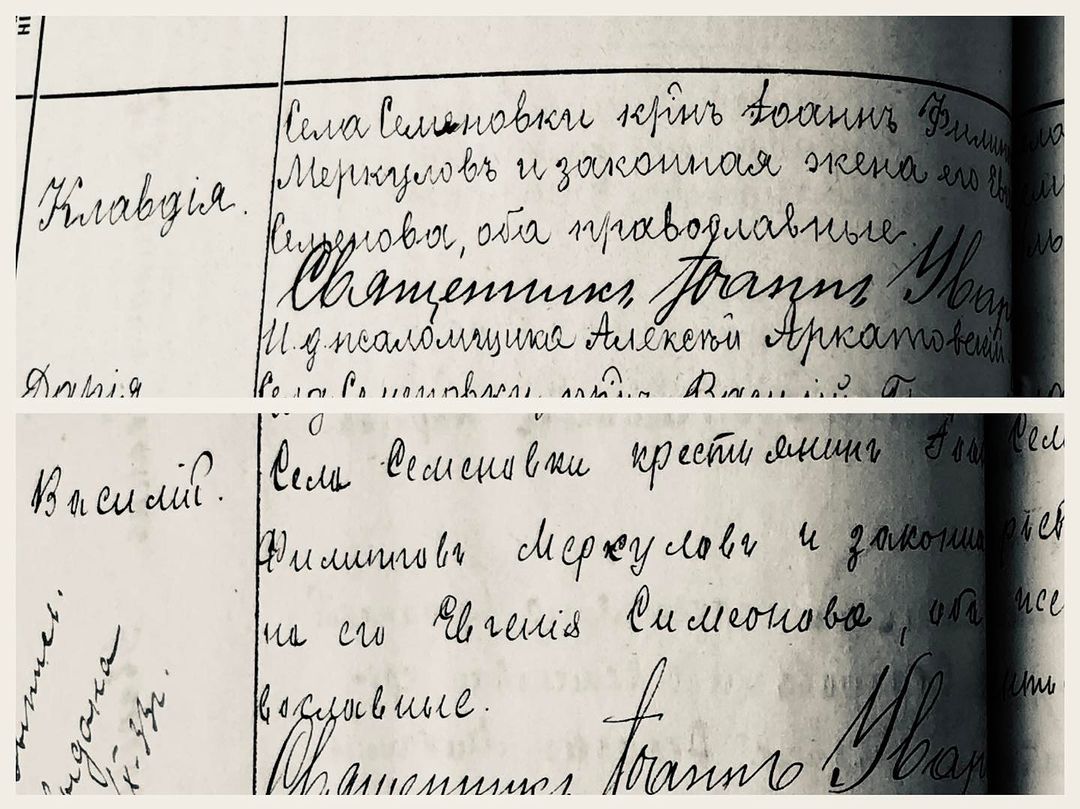 Клавдія.
Села Семеновки кр̃нъ Іоаннъ
Меркуловъ и законная жена его
Семенова, оба православные.
Священникъ Іоаннъ
И.д. псаломщика Алексѣй Аркатовскій.
Дарія
Села Семеновки кр̃нъ Василій
Василій.
Села Семеновки крестьянинъ
Филипповъ Меркуловъ и законна
на его Евгенія Симеонова, оба
вославные.
Священникъ Іоаннъ